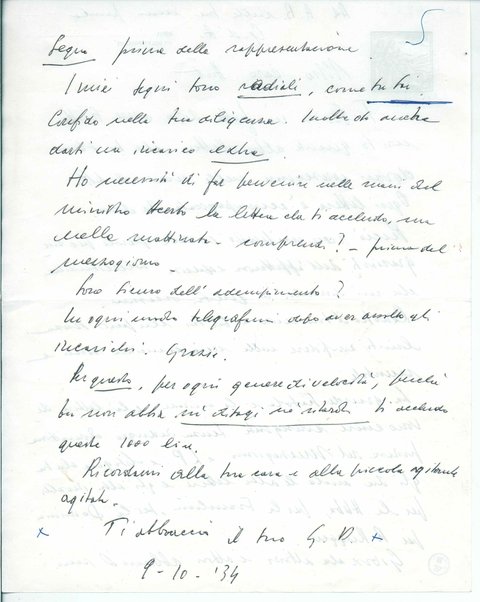 Segno prima della rappresentazione.
I miei segni sono radiali, come tu sai.
Confido nella tua diligenza. Inoltre
darti un incarico extra.
Ho necessità di far pervenire nelle mani del
ministro la lettera che ti accludo,
nella mattinata - comprendi? - prima del
mezzogiorno -
Sono sicuro dell'adempimento?
In ogni modo telegrafami dopo aver assolto gli
incarichi. Grazie.
Per questo, per ogni genere di velocità, perché
tu non abbia nè disagi nè ritardi ti accludo
queste 1000 lire.
Ricordami alla tua cara e alla piccola agitante
agitata.
x Ti abbraccia il tuo G D. x
9-10-'34